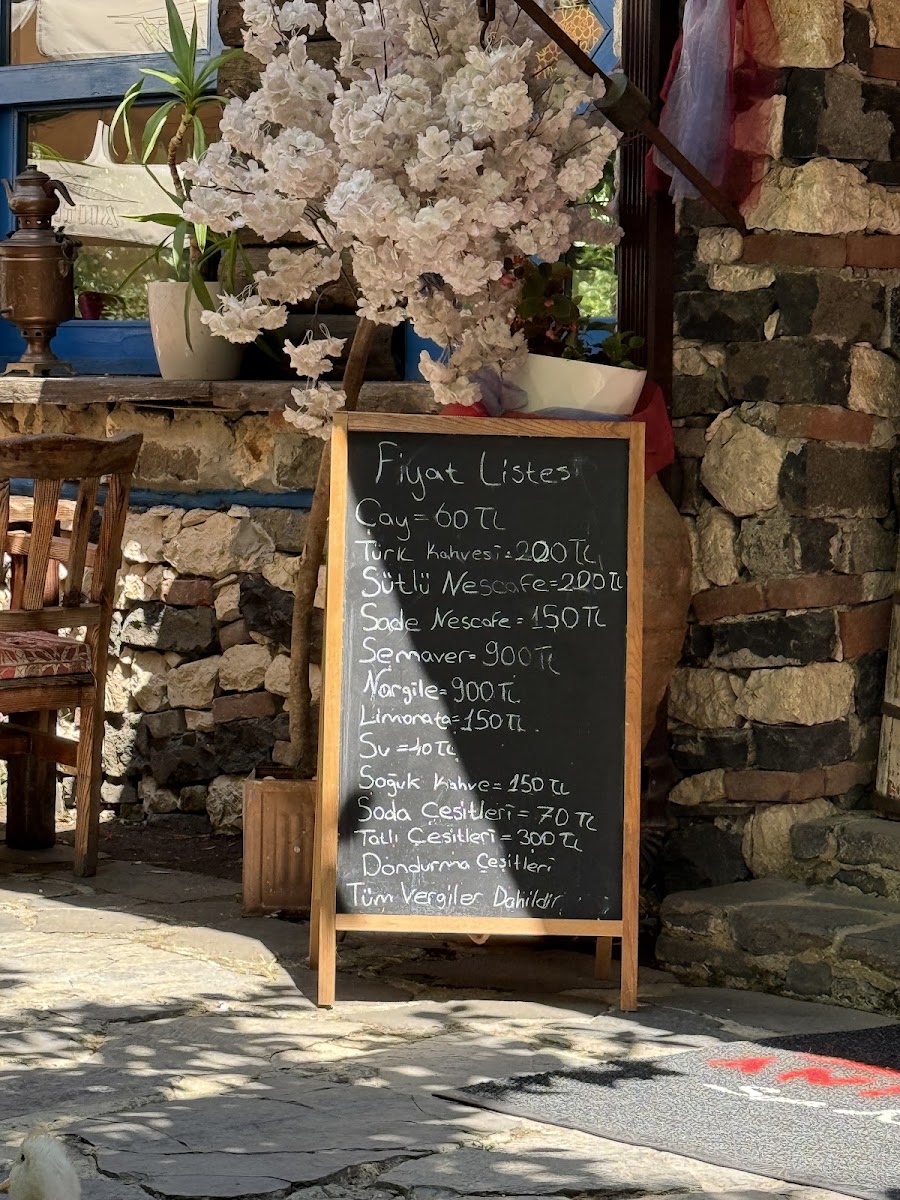 Fiyat Listesi
Çay = 60 TL
Türk Kahvesi = 200 TL
Sütlü Nescafe = 220 TL
Sade Nescafe = 150 TL
Semaver = 900 TL
Nargile = 900 TL
Limonata = 150 TL
Su = 40 TL
Soğuk Kahve = 150 TL
Soda Çeşitleri = 70 TL
Tatlı Çeşitleri = 300 TL
Dondurma Çeşitleri
Tüm Vergiler Dahildir